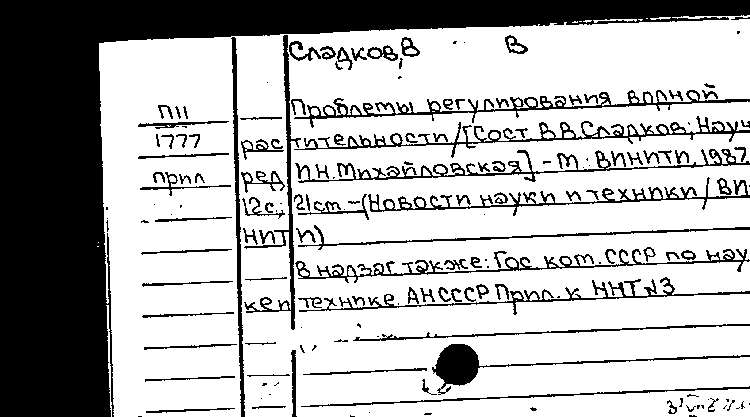 Сладков, В В
П11 Проблемы регулирования водной
1777 растительности / [Сост. В.В. Сладков; Науч
прил ред. И.Н. Михайловская] - М.: ВИНИТИ, 1987.
12с.; 21cm - (Новости науки и техники / ВИ-
НИТИ)
В надзаг также: Гос ком. СССР по нау
ке и технике АН СССР Прил. к ННТ №3